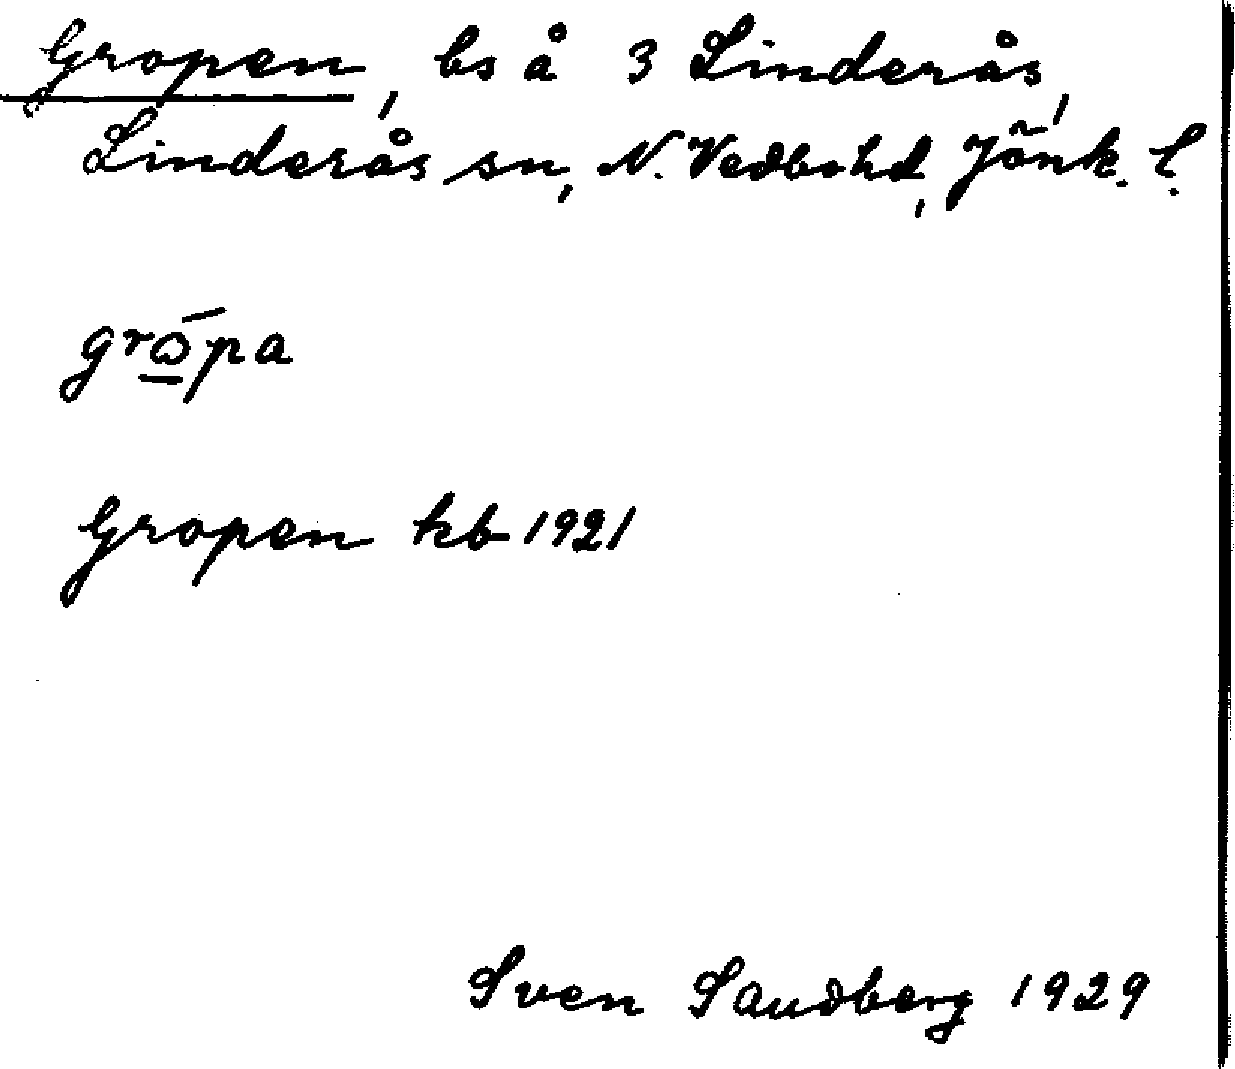 Gropen, bs å 3 Linderås,
Linderås sn, N. Vedbo hd, Jönk. l.
grópa
Gropen kb 1921
Sven Sandberg 1929